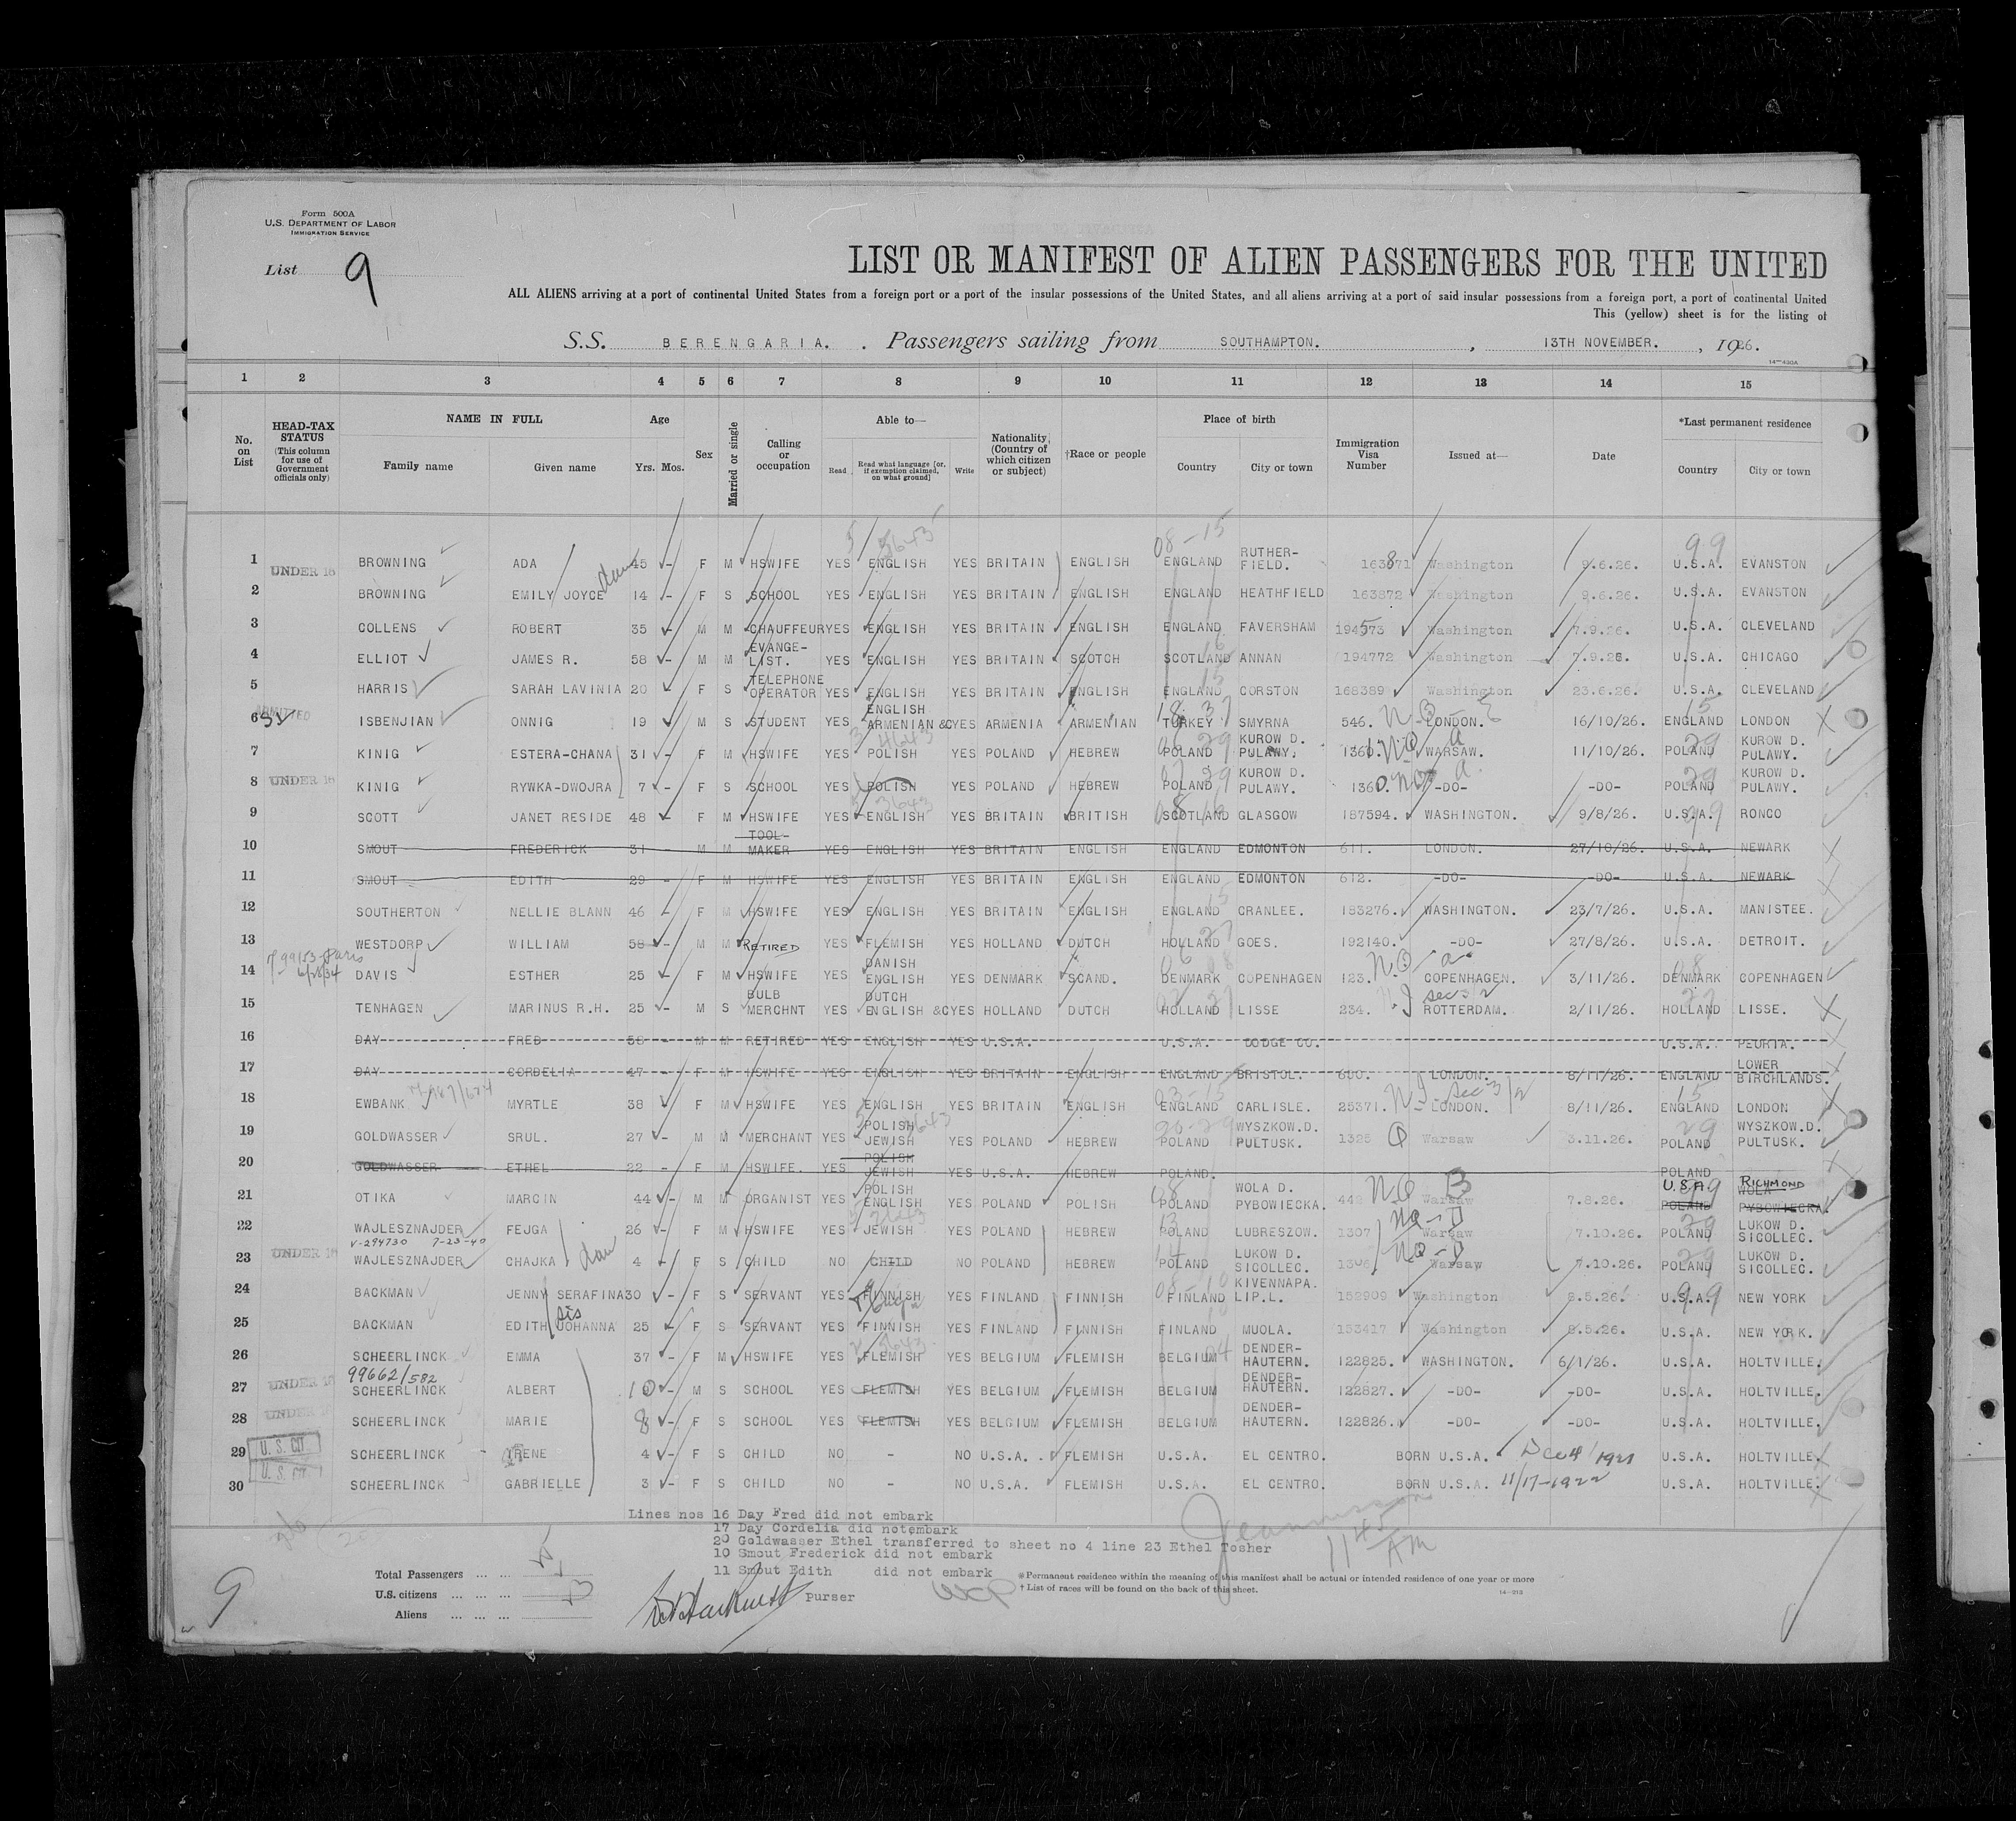 Form 500A
U.S. DEPARTMENT OF LABOR
IMMIGRATION SERVICE
List 9
LIST OR MANIFEST OF ALIEN PASSENGERS FOR THE UNITED
ALL ALIENS arriving at a port of continental United States from a foreign port or a port of the insular possessions of the United States, and all aliens arriving at a port of said insular possessions from a foreign port, a port of continental United
This (yellow) sheet is for the listing of
S.S. BERENGARIA. Passengers sailing from SOUTHAMPTON. , 13TH NOVEMBER. , 1926.
14—430A
1 2 3 4 5 6 7 8 9 10 11 12 13 14 15
No. on List
HEAD-TAX STATUS (This column for use of Government officials only)
NAME IN FULL Family name Given name
Age Yrs. Mos.
Sex
Married or single
Calling or occupation
Able to— Read Read what language [or, if exemption claimed, on what ground] Write
Nationality (Country of which citizen or subject)
†Race or people
Place of birth Country City or town
Immigration Visa Number
Issued at—
Date
*Last permanent residence Country City or town
1 UNDER 16 BROWNING ADA 45 - F M HSWIFE YES ENGLISH YES BRITAIN ENGLISH ENGLAND RUTHER-FIELD. 163871 Washington 9.6.26. U.S.A. EVANSTON
2 BROWNING EMILY JOYCE dau 14 - F S SCHOOL YES ENGLISH YES BRITAIN ENGLISH ENGLAND HEATHFIELD 163872 Washington 9.6.26. U.S.A. EVANSTON
3 COLLENS ROBERT 35 - M M CHAUFFEUR YES ENGLISH YES BRITAIN ENGLISH ENGLAND FAVERSHAM 194573 Washington 7.9.26. U.S.A. CLEVELAND
4 ELLIOT JAMES R. 58 - M M EVANGE-LIST. YES ENGLISH YES BRITAIN SCOTCH SCOTLAND ANNAN 194772 Washington 7.9.26. U.S.A. CHICAGO
5 HARRIS SARAH LAVINIA 20 F S TELEPHONE OPERATOR YES ENGLISH YES BRITAIN ENGLISH ENGLAND CORSTON 168389 Washington 23.6.26. U.S.A. CLEVELAND
6 ADMITTED ISBENJIAN ONNIG 19 M S STUDENT YES ENGLISH ARMENIAN &C YES ARMENIA ARMENIAN TURKEY SMYRNA 546. LONDON. 16/10/26. ENGLAND LONDON
7 KINIG ESTERA-CHANA 31 - F M HSWIFE YES POLISH YES POLAND HEBREW POLAND KUROW D. PULAWY. 1361. WARSAW. 11/10/26. POLAND KUROW D. PULAWY.
8 UNDER 16 KINIG RYWKA-DWOJRA 7 - F S SCHOOL YES POLISH YES POLAND HEBREW POLAND KUROW D. PULAWY. 1360. -DO- -DO- POLAND KUROW D. PULAWY.
9 SCOTT JANET RESIDE 48 - F M HSWIFE YES ENGLISH YES BRITAIN BRITISH SCOTLAND GLASGOW 187594. WASHINGTON. 9/8/26. U.S.A. RONCO
10 SMOUT FREDERICK 31 - M M TOOL-MAKER YES ENGLISH YES BRITAIN ENGLISH ENGLAND EDMONTON 611. LONDON. 27/10/26. U.S.A. NEWARK
11 SMOUT EDITH 29 - F M HSWIFE YES ENGLISH YES BRITAIN ENGLISH ENGLAND EDMONTON 612. -DO- -DO- U.S.A. NEWARK
12 SOUTHERTON NELLIE BLANN 46 - F M HSWIFE YES ENGLISH YES BRITAIN ENGLISH ENGLAND CRANLEE. 183276. WASHINGTON. 23/7/26. U.S.A. MANISTEE.
13 WESTDORP WILLIAM 58 - M M RETIRED YES FLEMISH YES HOLLAND DUTCH HOLLAND GOES. 192140. -DO- 27/8/26. U.S.A. DETROIT.
14 6/28/34 DAVIS ESTHER 25 - F M HSWIFE YES DANISH ENGLISH YES DENMARK SCAND. DENMARK COPENHAGEN 123. COPENHAGEN. 3/11/26. DENMARK COPENHAGEN
15 TENHAGEN MARINUS R.H. 25 - M S BULB MERCHNT YES DUTCH ENGLISH &C YES HOLLAND DUTCH HOLLAND LISSE 234. ROTTERDAM. 2/11/26. HOLLAND LISSE.
16 DAY FRED 50 - M M RETIRED YES ENGLISH YES U.S.A. U.S.A. DODGE CO. U.S.A. PEORIA.
17 DAY CORDELIA 47 - F M HSWIFE YES ENGLISH YES BRITAIN ENGLISH ENGLAND BRISTOL. 680. LONDON. 8/11/26. ENGLAND LOWER BIRCHLANDS.
18 EWBANK MYRTLE 38 F M HSWIFE YES ENGLISH YES BRITAIN ENGLISH ENGLAND CARLISLE. 25371. LONDON. 8/11/26. ENGLAND LONDON
19 GOLDWASSER SRUL. 27 - M M MERCHANT YES POLISH JEWISH YES POLAND HEBREW POLAND WYSZKOW.D. PULTUSK. 1325 Warsaw 3.11.26. POLAND WYSZKOW.D. PULTUSK.
20 GOLDWASSER ETHEL 22 - F M HSWIFE. YES POLISH JEWISH YES U.S.A. HEBREW POLAND. POLAND
21 OTIKA MARCIN 44 - M M ORGANIST YES POLISH ENGLISH YES POLAND POLISH POLAND WOLA D. PYBOWIECKA. 442 Warsaw 7.8.26. U.S.A. POLAND RICHMOND WOLA PYBOWIECKA.
22 WAJLESZNAJDER FEJGA 26 - F M HSWIFE YES JEWISH YES POLAND HEBREW POLAND LUBRESZOW. 1307 Warsaw 7.10.26. POLAND LUKOW D. SICOLLEC.
V-294730 7-23-40
23 UNDER 16 WAJLESZNAJDER CHAJKA dau 4 - F S CHILD NO CHILD NO POLAND HEBREW POLAND LUKOW D. SICOLLEC. 1306 Warsaw 7.10.26. POLAND LUKOW D. SICOLLEC.
24 BACKMAN JENNY SERAFINA 30 - F S SERVANT YES FINNISH YES FINLAND FINNISH FINLAND KIVENNAPA. LIP.L. 152909 Washington 8.5.26. U.S.A. NEW YORK
25 BACKMAN EDITH JOHANNA sis 25 - F S SERVANT YES FINNISH YES FINLAND FINNISH FINLAND MUOLA. 153417 Washington 8.5.26. U.S.A. NEW YORK.
26 SCHEERLINCK EMMA 37 - F M HSWIFE YES FLEMISH YES BELGIUM FLEMISH BELGIUM DENDER-HAUTERN. 122825. WASHINGTON. 6/1/26. U.S.A. HOLTVILLE.
99662/582
27 SCHEERLINCK ALBERT 10 - M S SCHOOL YES FLEMISH YES BELGIUM FLEMISH BELGIUM DENDER-HAUTERN. 122827. -DO- -DO- U.S.A. HOLTVILLE.
28 SCHEERLINCK MARIE 8 - F S SCHOOL YES FLEMISH YES BELGIUM FLEMISH BELGIUM DENDER-HAUTERN. 122826. -DO- -DO- U.S.A. HOLTVILLE.
29 U.S. CIT SCHEERLINCK IRENE 4 - F S CHILD NO - NO U.S.A. FLEMISH U.S.A. EL CENTRO. BORN U.S.A. U.S.A. HOLTVILLE.
30 U.S. CIT SCHEERLINCK GABRIELLE 3 - F S CHILD NO - NO U.S.A. FLEMISH U.S.A. EL CENTRO. BORN U.S.A. 11/17-1922 U.S.A. HOLTVILLE.
Lines nos 16 Day Fred did not embark
17 Day Cordelia did notembark
20 Goldwasser Ethel transferred to sheet no 4 line 23 Ethel Tosher
10 Smout Frederick did not embark
11 Smout Edith did not embark
Purser
Total Passengers
U.S. citizens
Aliens
*Permanent residence within the meaning of this manifest shall be actual or intended residence of one year or more
†List of races will be found on the back of this sheet.
14—213
9
1145 AM